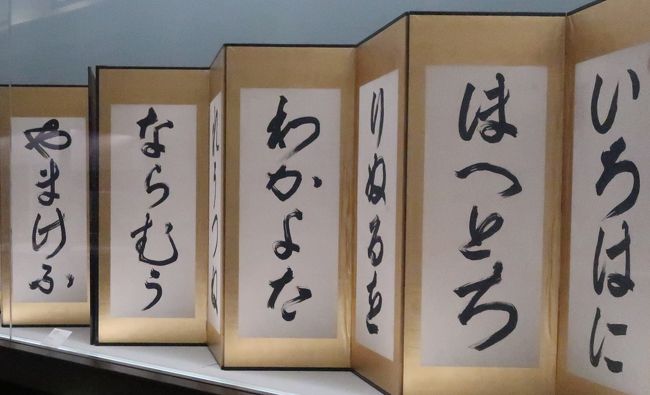 いろはに
ほへとち
りぬるを
わかよた
れそつね
ならむう
やまけふ